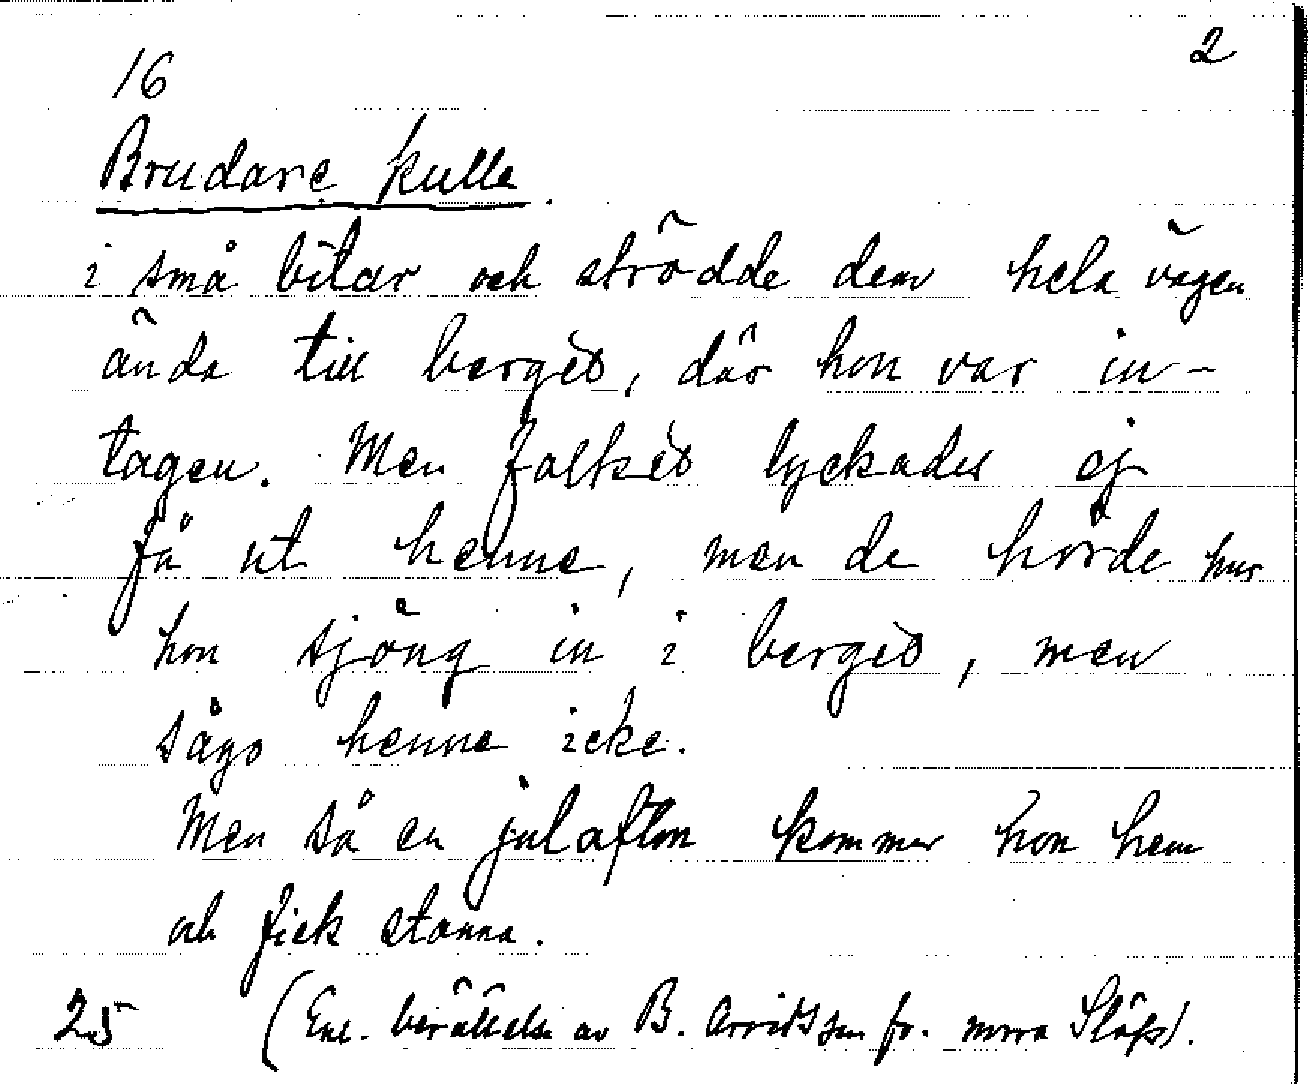 16 2
Brudare kulle.
i små bitar och strödde dem hela vägen
ända till berget, där hon var in-
tagen. Men folket lyckades ej
få ut henne, men de hörde hur
hon sjöng in i berget, men
sågo henne icke.
Men så en julafton kommer hon hem
och fick stanna.
25 (Enl. berättelse av B. Arvidsson fr. norra Släps).